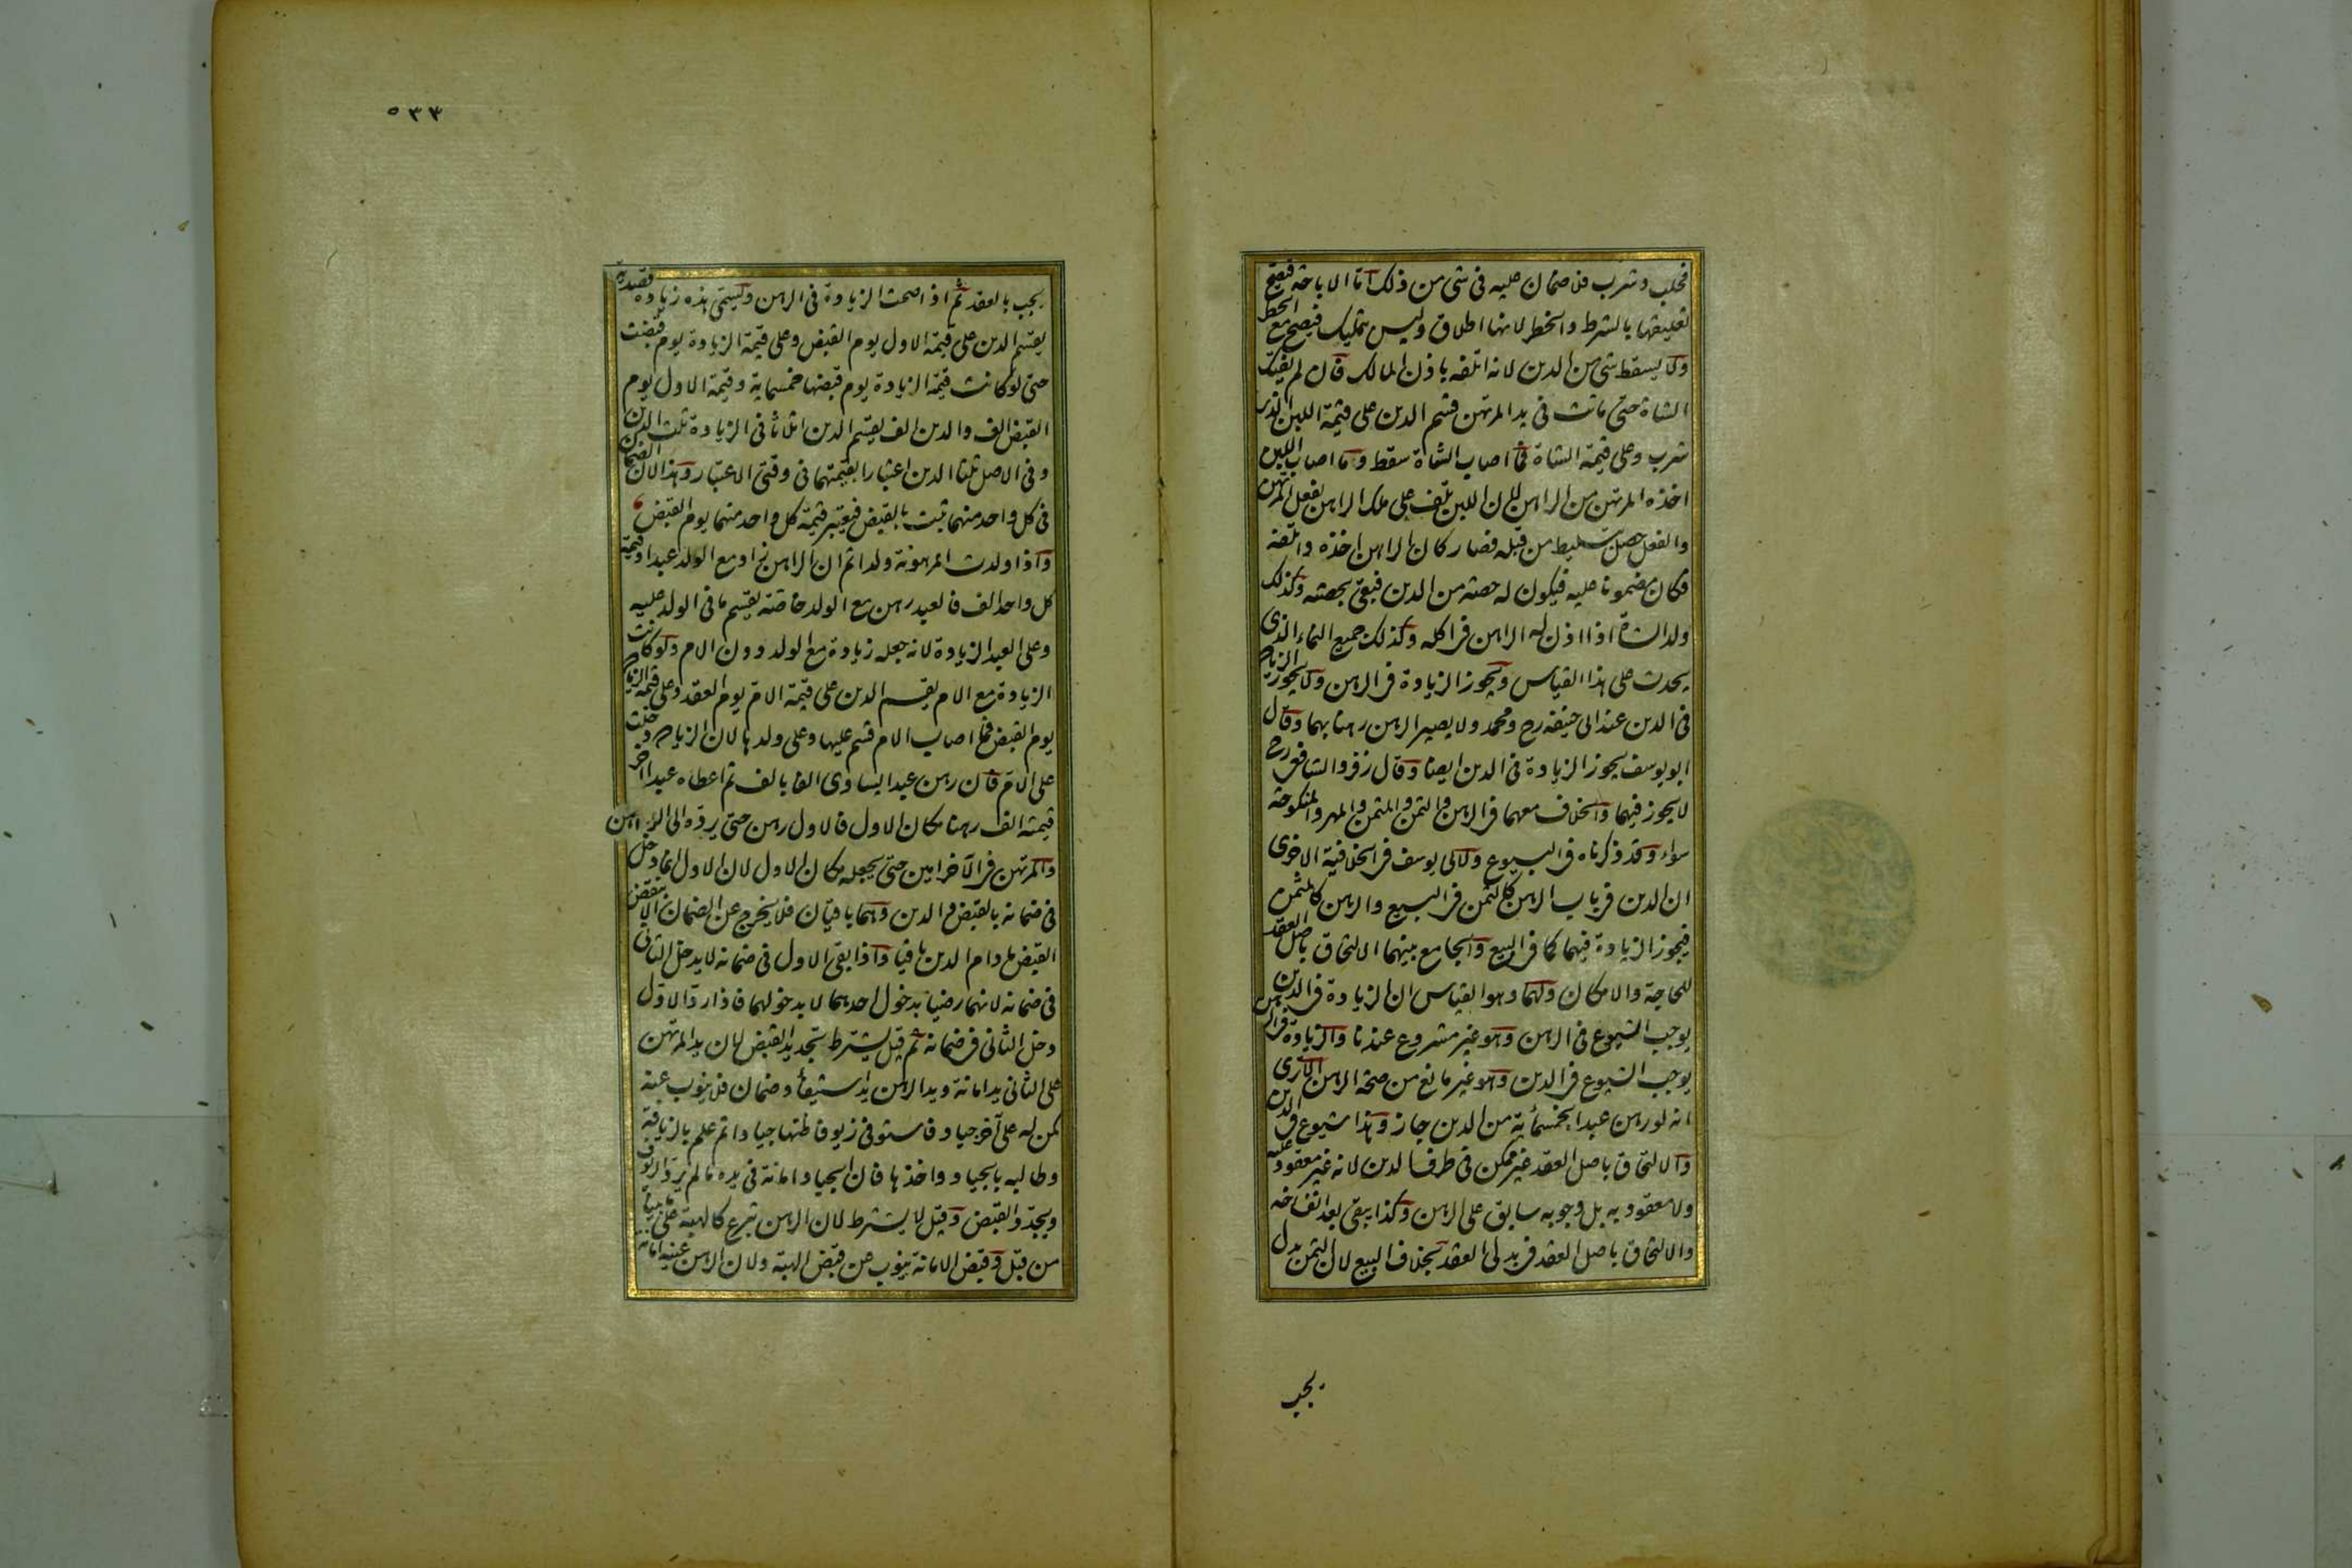 فحلب وشرب فلا ضمان عليه فى شئ من ذلك اما الاباحة فيصح
تعليقها بالشرط والخطر لانها اطلاق وليس بتمليك فيصح مع الخطر
ولا يسقط شئ من الدين لانه اتلفه باذن المالك فان لم يفتك
الشاة حتى ماتت فى يد المرتهن قسم الدين على قيمة اللبن الذى
شرب وعلى قيمة الشاة فما اصاب الشاة سقط وما اصاب اللبن
اخذه المرتهن من الراهن لان اللبن تلف على ملك الراهن بفعل المرتهن
والفعل حصل بتسليط من قبله فصار كان الراهن اخذه واتلفه
فكان مضمونا عليه فيكون له حصته من الدين فبقى بحصته وكذلك
ولد الشاة اذا اذن له الراهن فى اكله وكذلك جميع النماء الذى
يحدث على هذا القياس ويجوز الزيادة فى الرهن ولا يجوز الزيادة
فى الدين عند ابى حنيفه رح ومحمد ولا يصير الرهن رهنا بهما وقال
ابو يوسف يجوز الزيادة فى الدين ايضا وقال زفر والشافعى رح
لا يجوز فيهما والخلاف معهما فى الرهن والثمن والمثمن والمهر والمنكوحة
سواء وقد ذكرناه فى البيوع ولابى يوسف فى الخلافية الاخرى
ان الدين فى باب الرهن كالثمن فى البيع والرهن كالمثمن
فيجوز الزيادة فيهما كما فى البيع والجامع بينهما الالتحاق باصل العقد
للحاجة والامكان ولهما وهو القياس ان الزيادة فى الدين
يوجب الشيوع فى الرهن وهو غير مشروع عندنا والزيادة فى الرهن
يوجب الشيوع فى الدين وهو غير مانع من صحة الرهن الا ترى
انه لو رهن عبدا بخمسمائة من الدين جاز وهذا شيوع فى الدين
والالتحاق باصل العقد غير ممكن فى طرف الدين لانه غير معقود عليه
ولا معقود به بل وجوبه سابق على الرهن وكذا يبقى بعد انفساخه
والالتحاق باصل العقد فى بدلى العقد بخلاف البيع لان الثمن بدل
يجب
٥٣٣
يجب بالعقد ثم اذا صحت الزيادة فى الرهن وليسمى هذه زيادة قصدية
يقسم الدين على قيمة الاول يوم القبض وعلى قيمة الزيادة يوم قبضت
حتى لو كانت قيمة الزيادة يوم قبضها خمسماية وقيمة الاول يوم
القبض الف والدين الف يقسم الدين اثلاثا فى الزيادة ثلث الدين
وفى الاصل ثلثا الدين اعتبارا بقيمتهما فى وقتى الاعتبار وهذا لان الضمان
فى كل واحد منهما ثبت بالقبض فيعتبر قيمة كل واحد منهما يوم القبض
واذا ولدت المرهونة ولدا ثم ان الراهن زاد مع الولد عبدا وقيمة
كل واحد الف فالعبد رهن مع الولد خاصة يقسم ما فى الولد عليه
وعلى العبد الزيادة لانه جعله زيادة مع الولد دون الام ولو كانت
الزيادة مع الام يقسم الدين على قيمة الام يوم العقد وعلى قيمة الزيادة
يوم القبض فما اصاب الام قسم عليها وعلى ولدها لان الزيادة دخلت
على الام فان رهن عبدا يساوى الفا بالف ثم اعطاه عبدا آخر
قيمته الف رهنا مكان الاول فالاول رهن حتى يرده الى الراهن
والمرتهن فى الآخر امين حتى يجعله مكان الاول لان الاول انما دخل
فى ضمانه بالقبض والدين وهما باقيان فلا يخرج عن الضمان الا بنقض
القبض ما دام الدين باقيا واذا بقى الاول فى ضمانه لا يدخل الثانى
فى ضمانه لانهما رضيا بدخول احدهما لا بدخولهما فاذا رد الاول
دخل الثانى فى ضمانه ثم قيل يشترط تجديد القبض لان يد المرتهن
على الثانى يد امانة ويد الرهن يد استيفاء وضمان فلا ينوب عنه
كمن له على آخر جياد فاستوفى زيوفا ظنها جيادا ثم علم بالزيافة
وطالبه بالجياد واخذها فان الجياد امانة فى يده ما لم يرد الزيوف
ويجدد القبض وقيل لا يشترط لان الرهن تبرع كالهبة على ما بيناه
من قبل وقبض الامانة ينوب عن قبض الهبة ولان الرهن عينه امانة